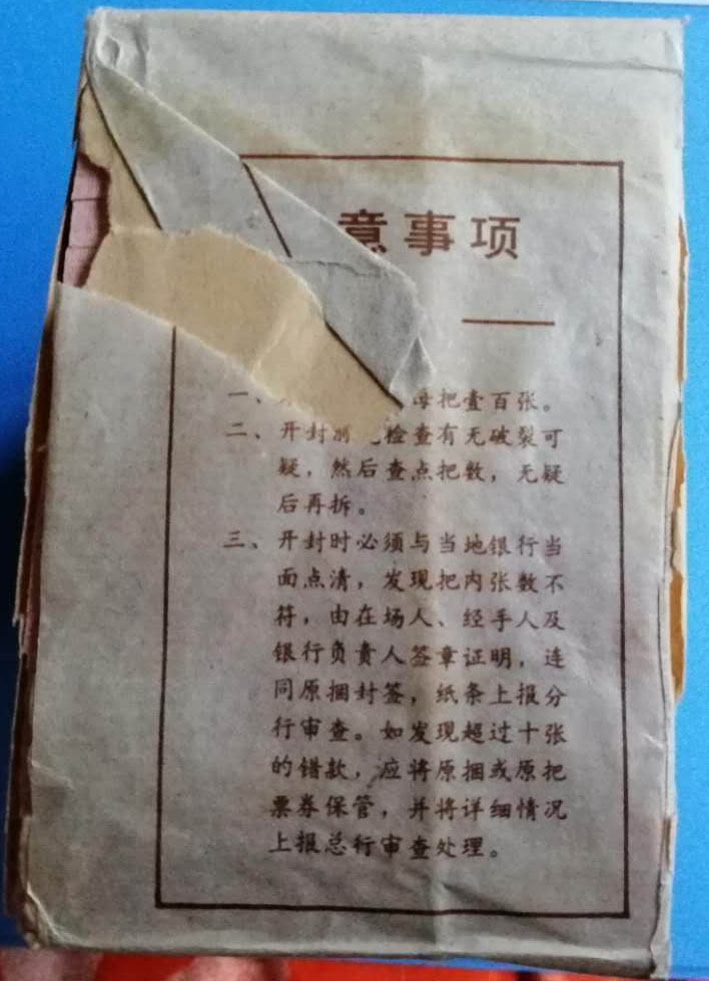 意事项
一、每把壹百张。
二、开封前检查有无破裂可
疑，然后查点把数，无疑
后再拆。
三、开封时必须与当地银行当
面点清，发现把内张数不
符，由在场人、经手人及
银行负责人签章证明，连
同原捆封签，纸条上报分
行审查。如发现超过十张
的错款，应将原捆或原把
票券保管，并将详细情况
上报总行审查处理。